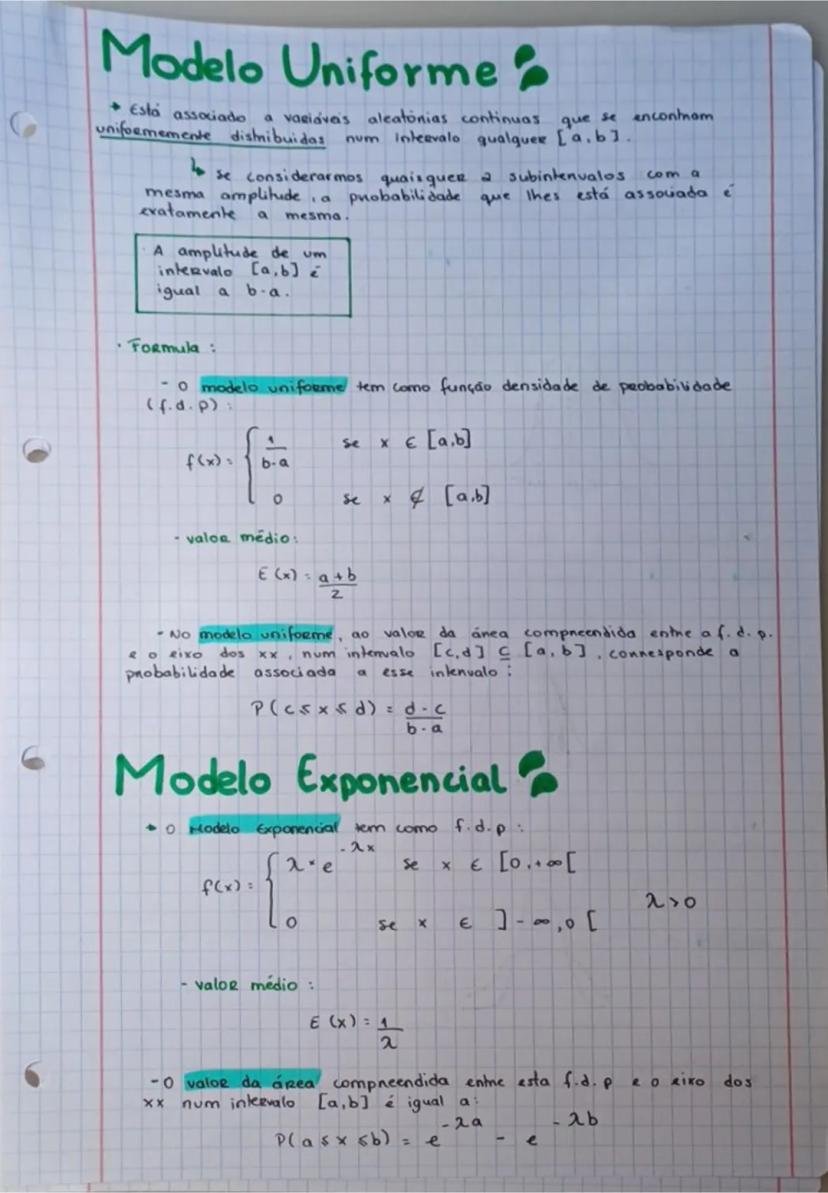 Modelo Uniforme
→ Está associado a variáveis aleatórias continuas que se encontram
uniformemente distribuidas num intervalo qualquer [a,b].
↳ se considerarmos quaisquer 2 subintervalos com a
mesma amplitude, a probabilidade que lhes está associada é
exatamente a mesma.
A amplitude de um
intervalo [a,b] é
igual a b-a.
· Formula :
- O modelo uniforme tem como função densidade de probabilidade
(f.d.p) :
f(x) = { 1/(b-a) se x ∈ [a,b]
0 se x ∉ [a,b]
- valor médio:
E(x) = (a+b)/2
- No modelo uniforme, ao valor da área compreendida entre a f.d.p.
e o eixo dos xx, num intervalo [c,d] ⊆ [a,b], corresponde a
probabilidade associada a esse intervalo :
P(c ≤ x ≤ d) = (d-c)/(b-a)
Modelo Exponencial
→ O Modelo Exponencial tem como f.d.p :
f(x) = { λ × e^(-λx) se x ∈ [0,+∞[
λ > 0
0 se x ∈ ]-∞,0[
- valor médio :
E(x) = 1/λ
- O valor da área compreendida entre esta f.d.p e o eixo dos
xx num intervalo [a,b] é igual a:
P(a ≤ x ≤ b) = e^(-λa) - e^(-λb)